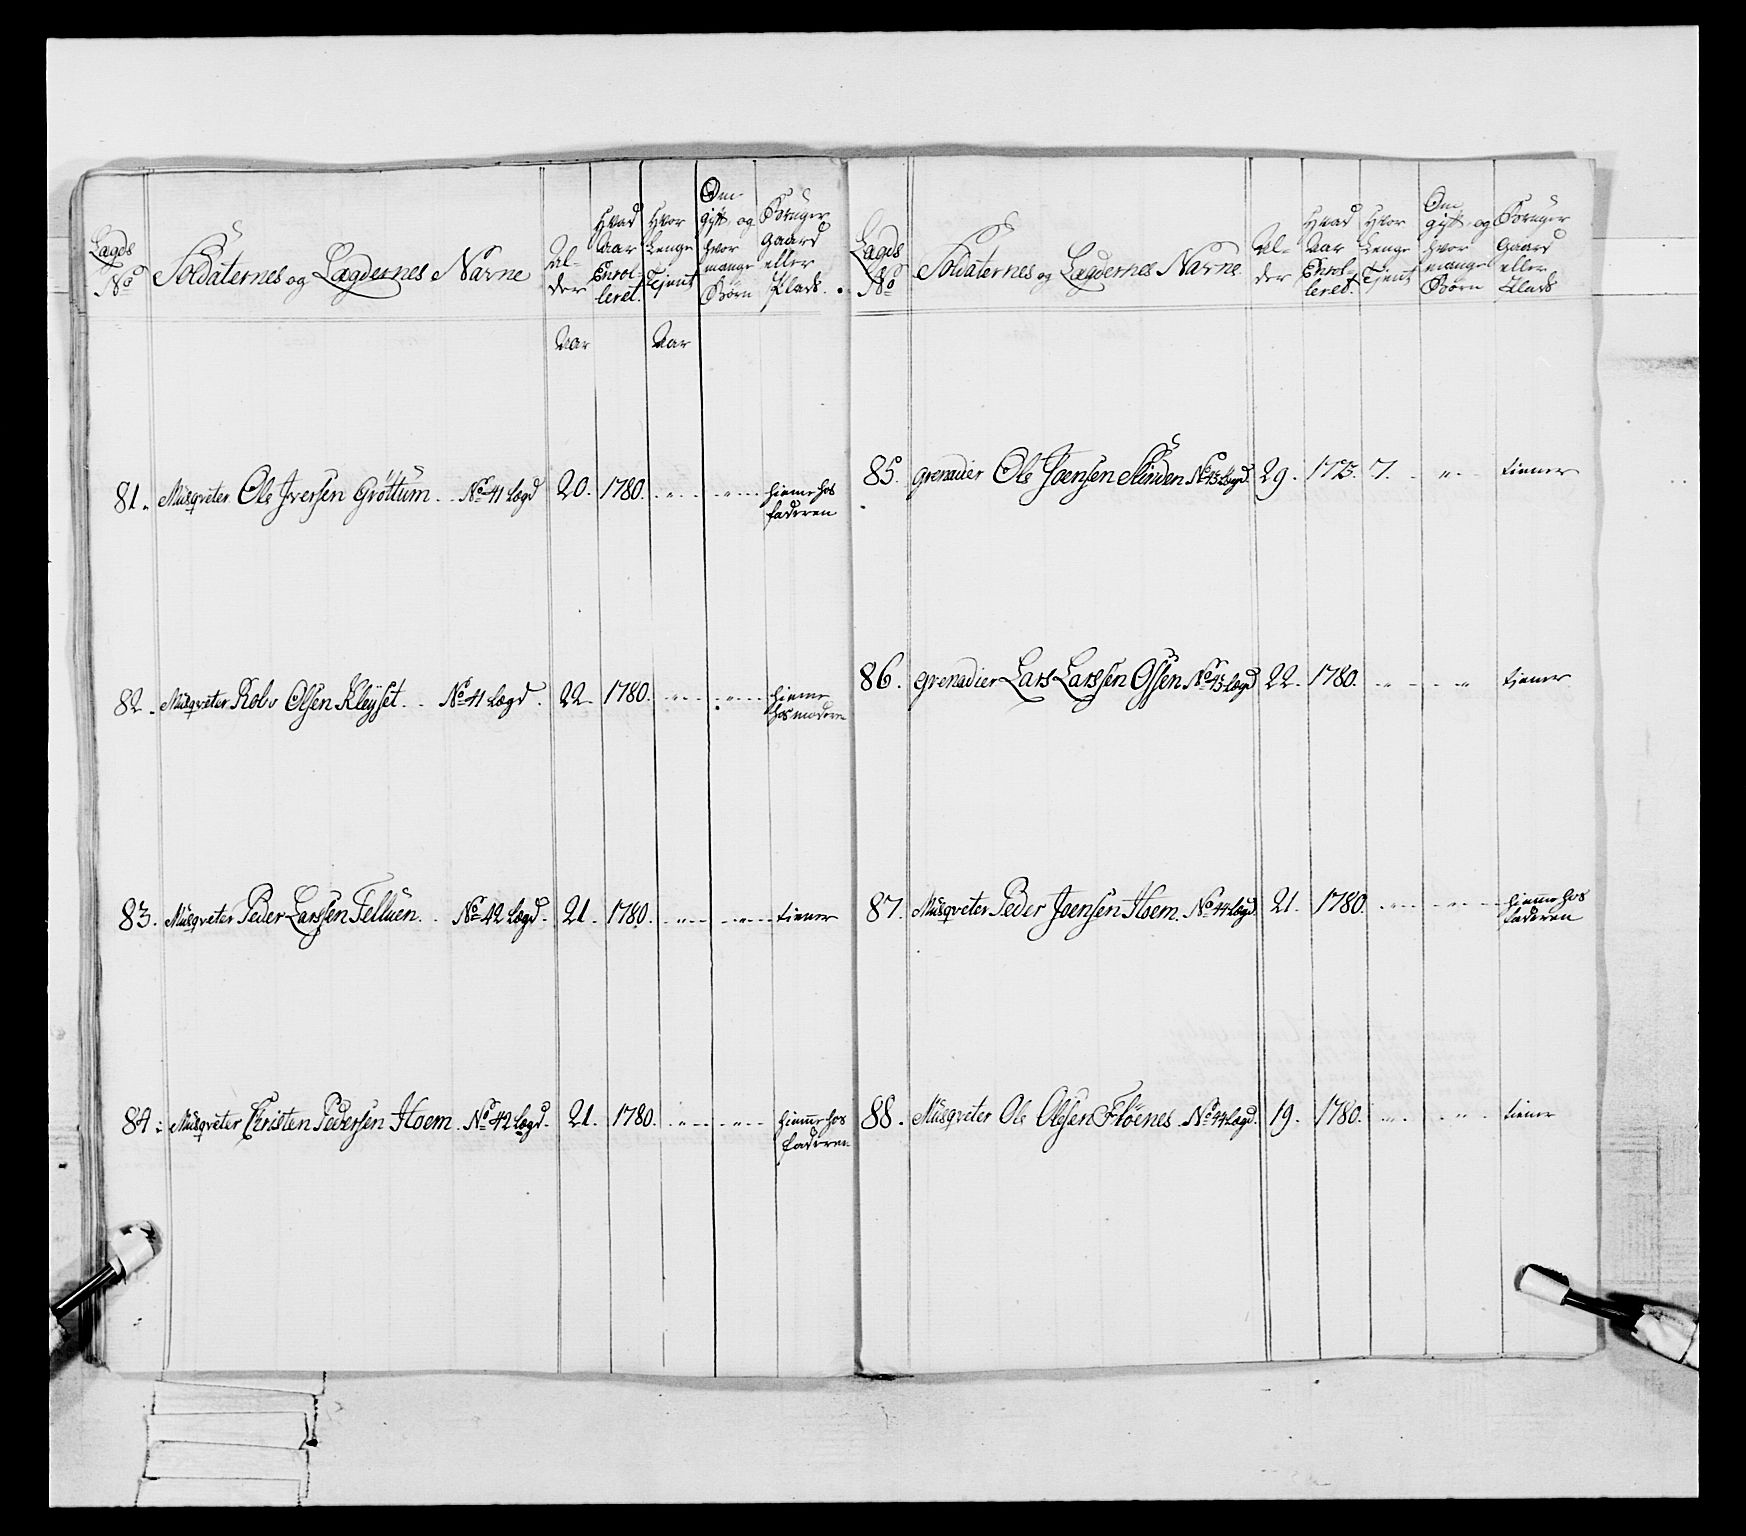 Lægds No
Soldaternes og Lægdernes Navne
Al-
der
Hvad
Aar
Enrol-
leret.
Hvor
Lenge
Tjent
Om
gift og
hvor
mange
Børn
Bruger
Gaard
eller
Plads.
Aar
Aar
81. Musqveter Ole Iversen Grøttum. No 41 Lægd 20. 1780. hiemme hos
faderen
82. Musqveter Olsen Kleyset. No 41 Lægd. 22. 1780. hieme
hos moderen
83. Musqveter Peder Larssen No 42 Lægd. 21. 1780. tiener
84. Musqveter Christen Pedersen Hoem. No 42 Lægd. 21. 1780. hieme hos
faderen
Lægds No
Soldaternes og Lægdernes Navne
Al-
der
Hvad
Aar
Enrol-
leret.
Hvor
Lenge
Tjent
Om
gift og
hvor
mange
Børn
Bruger
Gaard
eller
Plads
85. grenadier Ole Joensen No 43 Lægd 29. 1773. 7. tiener
86. grenadier Lars Larssen No 43 Lægd 22. 1780. tiener
87. Musqveter Peder Joensen Hoem. No 44 Lægd. 21. 1780. hieme hos
faderen
88. Musqveter Ole Olsen Fløenes. No 44 Lægd. 19. 1780. tiener